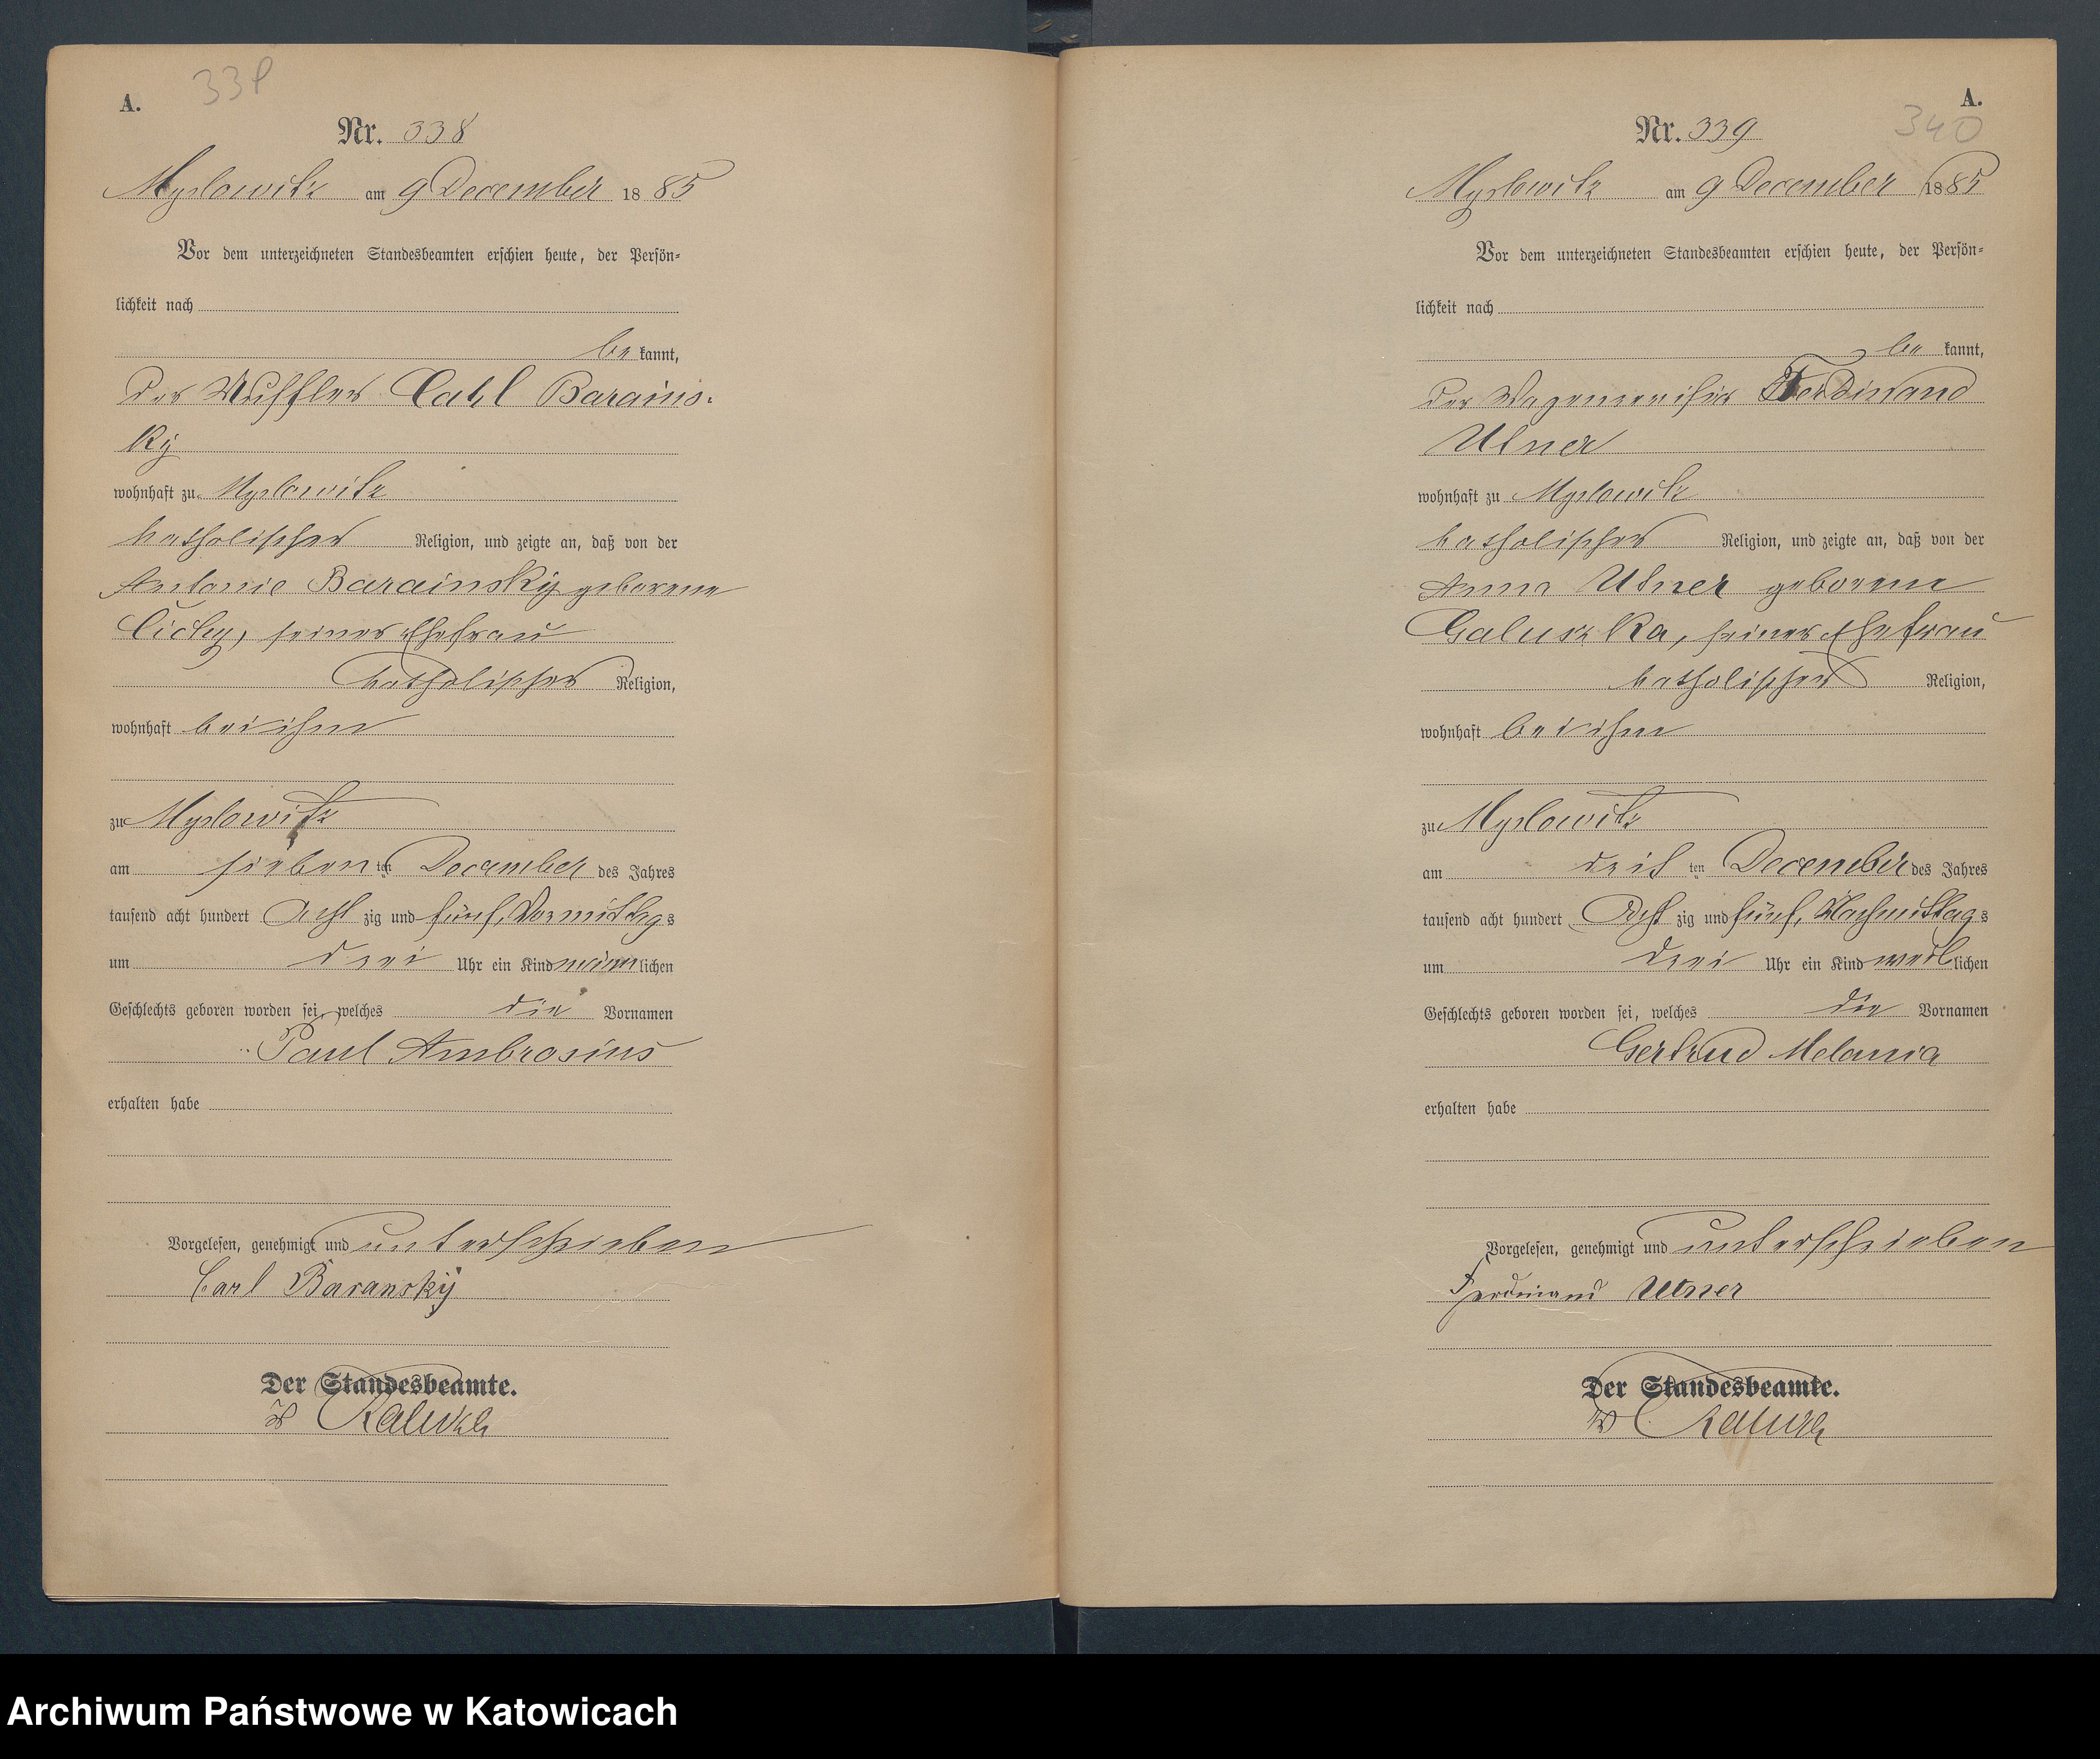 339
A.
Nr. 338
Myslowitz am 9 December 1885
Vor dem unterzeichneten Standesbeamten erschien heute, der Persön-
lichkeit nach
bekannt,
der Carl Barains-
ky
wohnhaft zu Myslowitz
katholischer Religion, und zeigte an, daß von der
Antonie Barainsky geborene
Cichy, seiner Ehefrau
katholischer Religion,
wohnhaft bei ihm
zu Myslowitz
am siebenten December des Jahres
tausend acht hundert Achtzig und fünf, Vormittags
um drei Uhr ein Kind männlichen
Geschlechts geboren worden sei, welches die Vornamen
Paul Ambrosius
erhalten habe
Vorgelesen, genehmigt und unterschrieben
Carl Baransky
Der Standesbeamte.
A.
340
Nr. 339
Myslowitz am 9 December 1885
Vor dem unterzeichneten Standesbeamten erschien heute, der Persön-
lichkeit nach
bekannt,
der Wagenmeister Ferdinand
Utner
wohnhaft zu Myslowitz
katholischer Religion, und zeigte an, daß von der
Anna Utner geborene
Galuszka, seiner Ehefrau
katholischer Religion,
wohnhaft bei ihm
zu Myslowitz
am dritten December des Jahres
tausend acht hundert Achtzig und fünf, Nachmittags
um drei Uhr ein Kind weiblichen
Geschlechts geboren worden sei, welches die Vornamen
Gertrud Melania
erhalten habe
Vorgelesen, genehmigt und unterschrieben
Ferdinand Utner
Der Standesbeamte.
Archiwum Państwowe w Katowicach